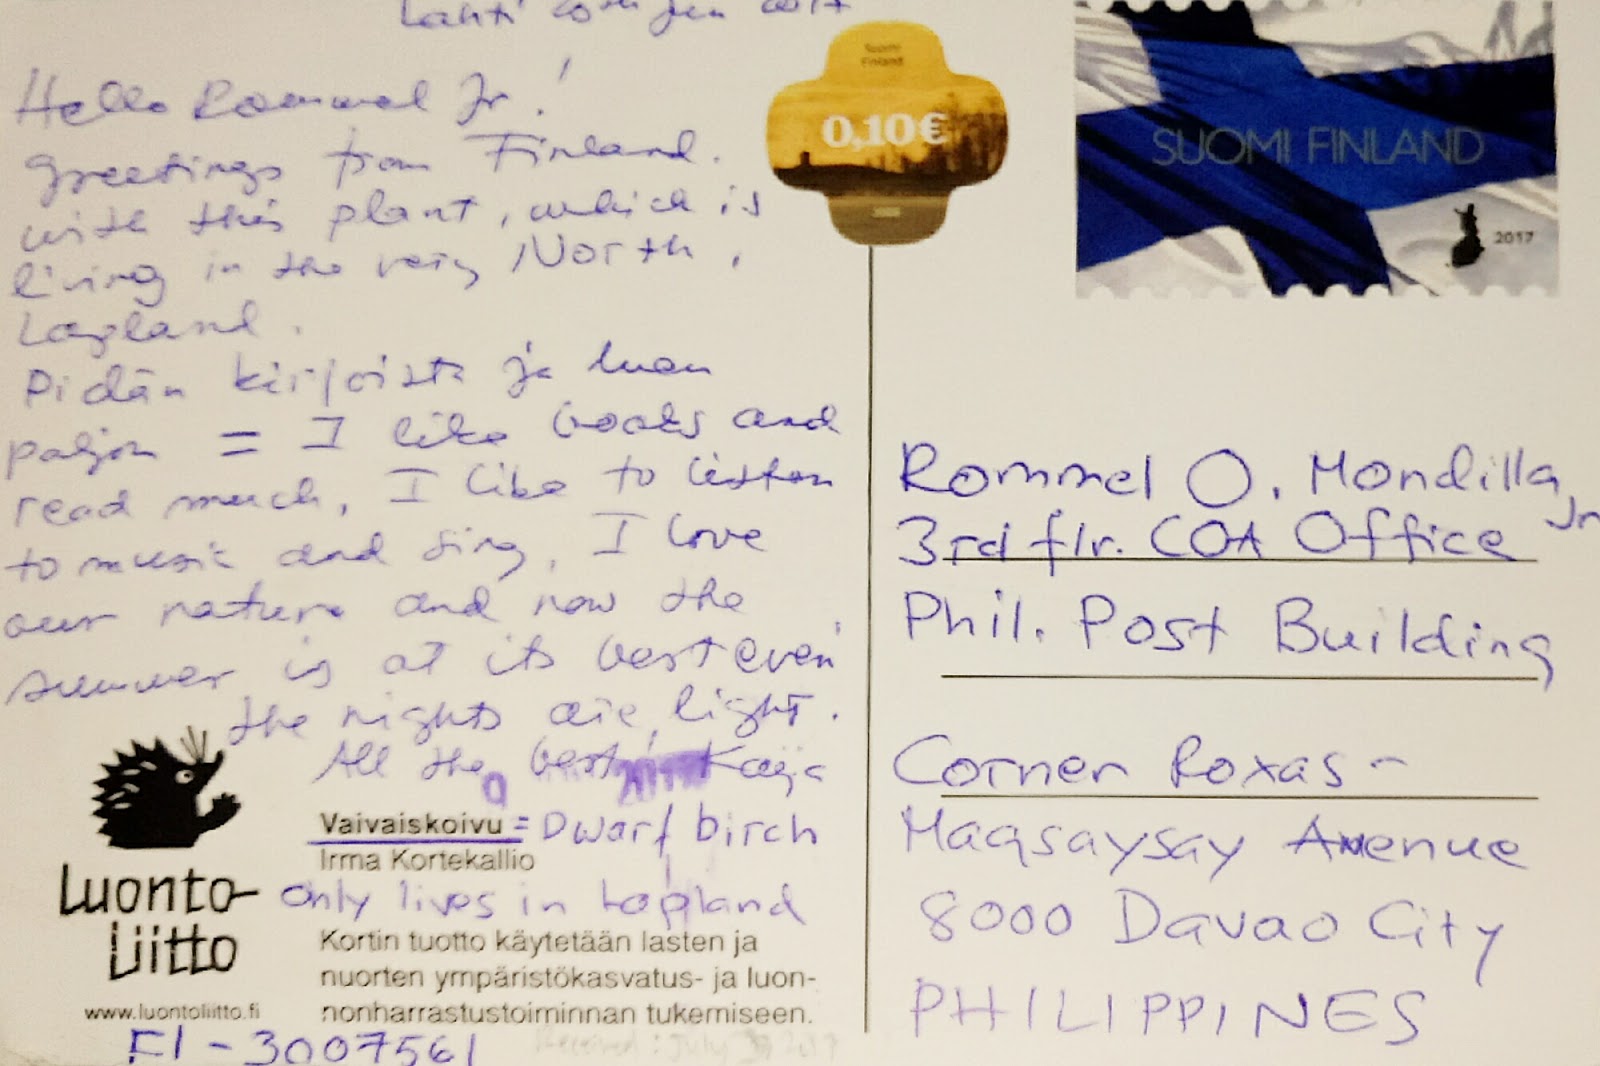 Lahti
Hello Rommel Jr!
Greetings from Finland.
with this plant, which is
living in the very North,
Lapland.
Pidän kirjoista ja luen
paljon = I like books and
read much, I like to listen
to music and sing, I love
our nature and now the
summer is at its best even
the nights are light.
All the best Kaija
Vaivaiskoivu = Dwarf birch
Irma Kortekallio
Only lives in Lapland
Kortin tuotto käytetään lasten ja
nuorten ympäristökasvatus- ja luon-
nonharrastustoiminnan tukemiseen.
Luonto-
Liitto
www.luontoliitto.fi
FI - 3007561
Received: July 2017
Suomi
Finland
0,10€
SUOMI FINLAND
2017
Rommel O. Mondilla Jr
3rd flr. COA Office
Phil. Post Building
Corner Roxas -
Magsaysay Avenue
8000 Davao City
PHILIPPINES